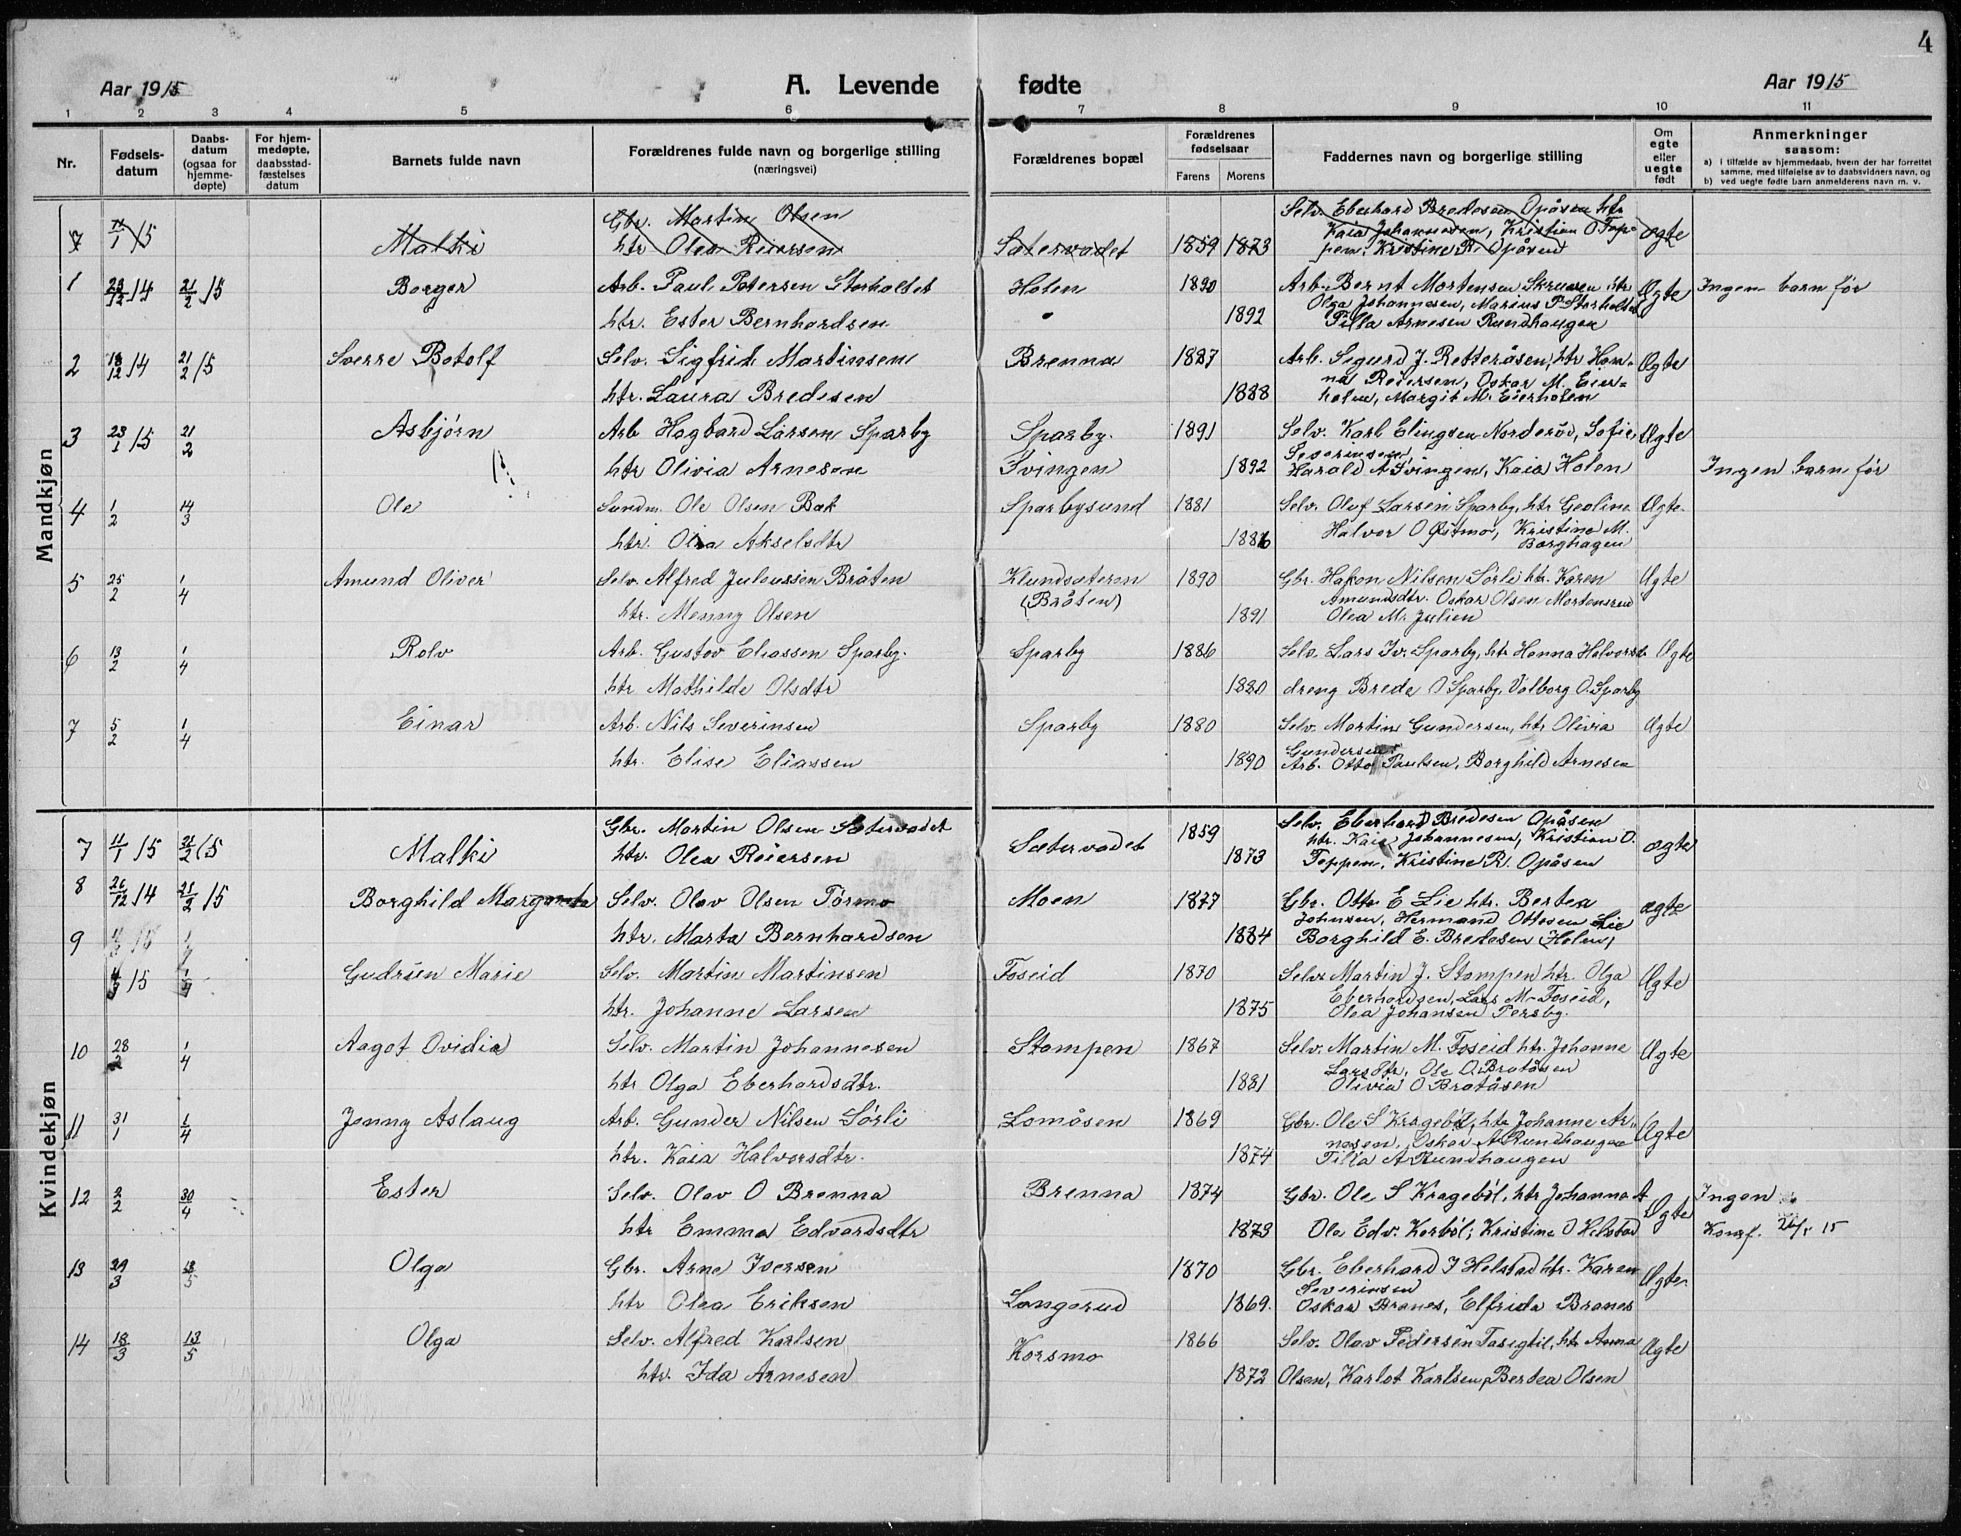 4
Aar 1915 A. Levende fødte Aar 1915
1 2 3 4 5 6 7 8 9 10 11
Nr.
Fødsels-
datum
Daabs-
datum
(ogsaa for
hjemme-
døpte)
For hjem-
medøpte,
daabsstad-
fæstelses
datum
Barnets fulde navn
Forældrenes fulde navn og borgerlige stilling
(næringsvei)
Forældrenes bopæl
Forældrenes
fødselsaar
Farens Morens
Faddernes navn og borgerlige stilling
Om
egte
eller
uegte
født
Anmerkninger
saasom:
a) i tilfælde av hjemmedaab, hvem der har forrettet
samme, med tilføielse av to daabsvidners navn, og
b) ved uegte fødte barn anmelderens navn m. v.
Mandkjøn
7 11/1 15 Malki Gbr. Martin Olsen
htr Olea Reiersen Sætervadet 1859 1873
Selv. Eberhard Bredesen Opåsen htr
Kaia Johannesen, Kristian O Top-
pen, Kristine R. Opåsen ægte
1 23/12 14 21/2 15 Borger Arb. Paul Petersen Storholtet Holen 1890 Arb. Bernt Mortensen Skrussen htr Ægte Ingen barn før
Olga Johannesen, Marius P Storholtet
htr. Ester Bernhardsen " 1892 Tilla Arnesen Rundhaugen
2 18/12 14 21/2 15 Sverre Botolf Selv. Sigfrid Martinsen Brenna 1887 Arb. Sigurd J. Retteråsen, htr Han- Ægte
na Reiersen, Oskar M. Eier-
htr. Laura Bredesen 1888 holen, Margit M. Eierholen
3 23/1 15 21/2 Asbjørn Arb Hagbard Larsen Sparby Sparby. 1891 Selv. Karl Elingsen Norderød, Sofie Ægte
Severinsen,
htr Olivia Arnesen Svingen 1892 Harald A Svingen, Kaia Holen Ingen barn før
4 1/2 14/3 Ole Sundm. Ole Olsen Bak Sparbysund 1881 Selv. Oluf Larsen Sparby, htr Geoline Ægte.
Halvor O Østmo, Kristine M.
htr. Olea Akselsdtr 1886 Borghagen
5 25/2 1/4 Amund Oliver Selv. Alfred Juliussen Bråten Klundsæteren 1890 Gbr. Hakon Nilsen Sørli htr. Karen Ægte
(Bråten) Amundsdtr. Oskar Olsen Mortensrud
htr. Menny Olsen 1891 Olea M. Julien
6 13/2 1/4 Rolv Arb. Gustav Eliassen Sparby. Sparby 1886 Selv. Lars Iv. Sparby, htr Hanna Halvorsdtr Ægte
htr Mathilde Olsdtr 1880 dreng Brede O Sparby, Valborg O. Sparby
7 5/2 1/4 Einar Arb. Nils Severinsen Sparby 1880 Selv. Martin Gundersen, htr Olivia Ægte
Gundersen
htr. Elise Eliassen 1890 Arb. Otto Paulsen, Borghild Arnesen
Kvindekjøn
Gbr. Martin Olsen Sætervadet Selv. Eberhard Bredesen Opåsen
7 11/1 15 21/2 15 Malki htr. Olea Reiersen Sætervadet 1859 htr. Kaia Johannesen, Kristian O. ægte
1873 Toppen, Kristine R. Opåsen
8 26/12 14 21/2 15 Borghild Margareta Selv. Olav Olsen Tørmo Moen 1877 Gbr. Otto E Lie htr. Bertea ægte
Johnsen, Hermand Ottesen Lie
9 htr. Marta Bernhardsen 1884 Borghild E. Bredesen (Holen)
4/3 15 1/4 Gudrun Marie Selv. Martin Martinsen Foseid 1870 Selv. Martin J. Stompen htr. Olga Ægte
Eberhardsen, Lars M. Foseid,
htr. Johanne Larsen 1875 Olea Johansen Persby.
10 28/2 1/4 Aagot Ovidia Selv. Martin Johannesen Stompen 1867 Selv. Martin M. Foseid htr. Johanne Ægte
Larsdtr, Ole O. Bratåsen
htr Olga Eberhardsdtr. 1881 Olivia O Bratåsen
11 31/1 1/4 Jenny Aslaug Arb. Gunder Nilsen Sørli Lomåsen 1869 Gbr. Ole S Kragebøl, htr Johanne Ar- Ægte
nesen, Oskar A Rundhaugen
htr. Kaia Halvorsdtr. 1874 Tilla A Rundhaugen
12 2/2 30/4 Ester Selv. Olav O Brenna Brenna 1874 Gbr. Ole S Kragebøl, htr Johanna A Ægte Ingen
htr Emma Edvardsdtr 1873 Ole Edv. Korbøl, Kristine O Helstad Konf. 15
13 29/3 13/5 Olga Gbr. Arne Iversen 1870 Gbr. Eberhard I Helstad htr. Karen Ægte.
Severinsen
htr Olea Eriksen Langerud 1869. Oskar Branes, Elfrida Branes
14 18/3 13/5 Olga Selv. Alfred Karlsen Korsmo 1866 Selv. Olav Pedersen Tasigtil, htr Anna Ægte
htr. Ida Arnesen 1872 Olsen, Karlot Karlsen, Bertea Olsen